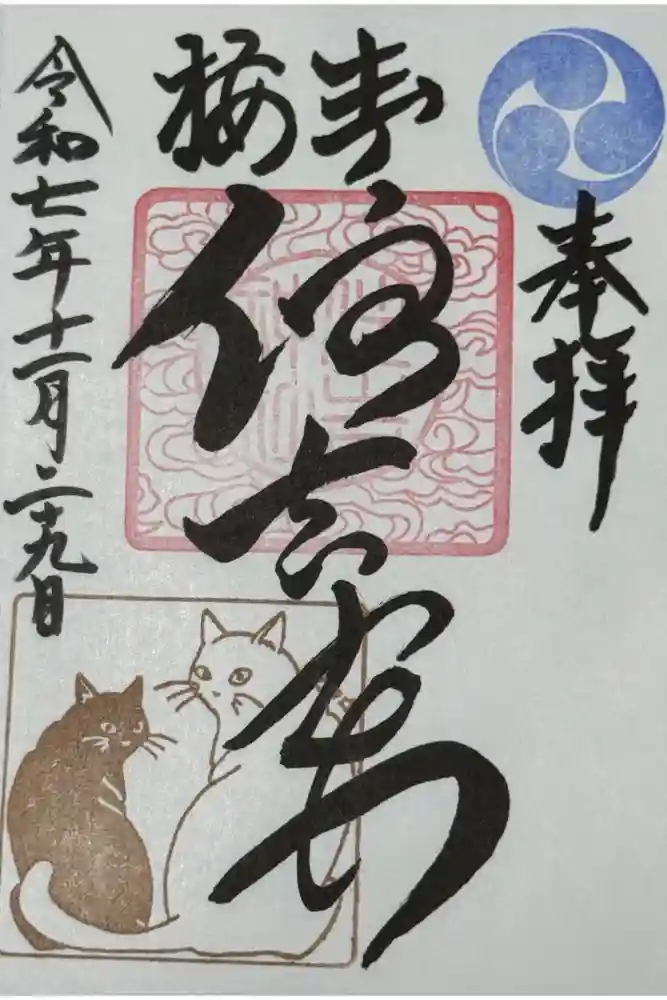 奉拝
青梅
住吉神社
令和七年十一月二十九日